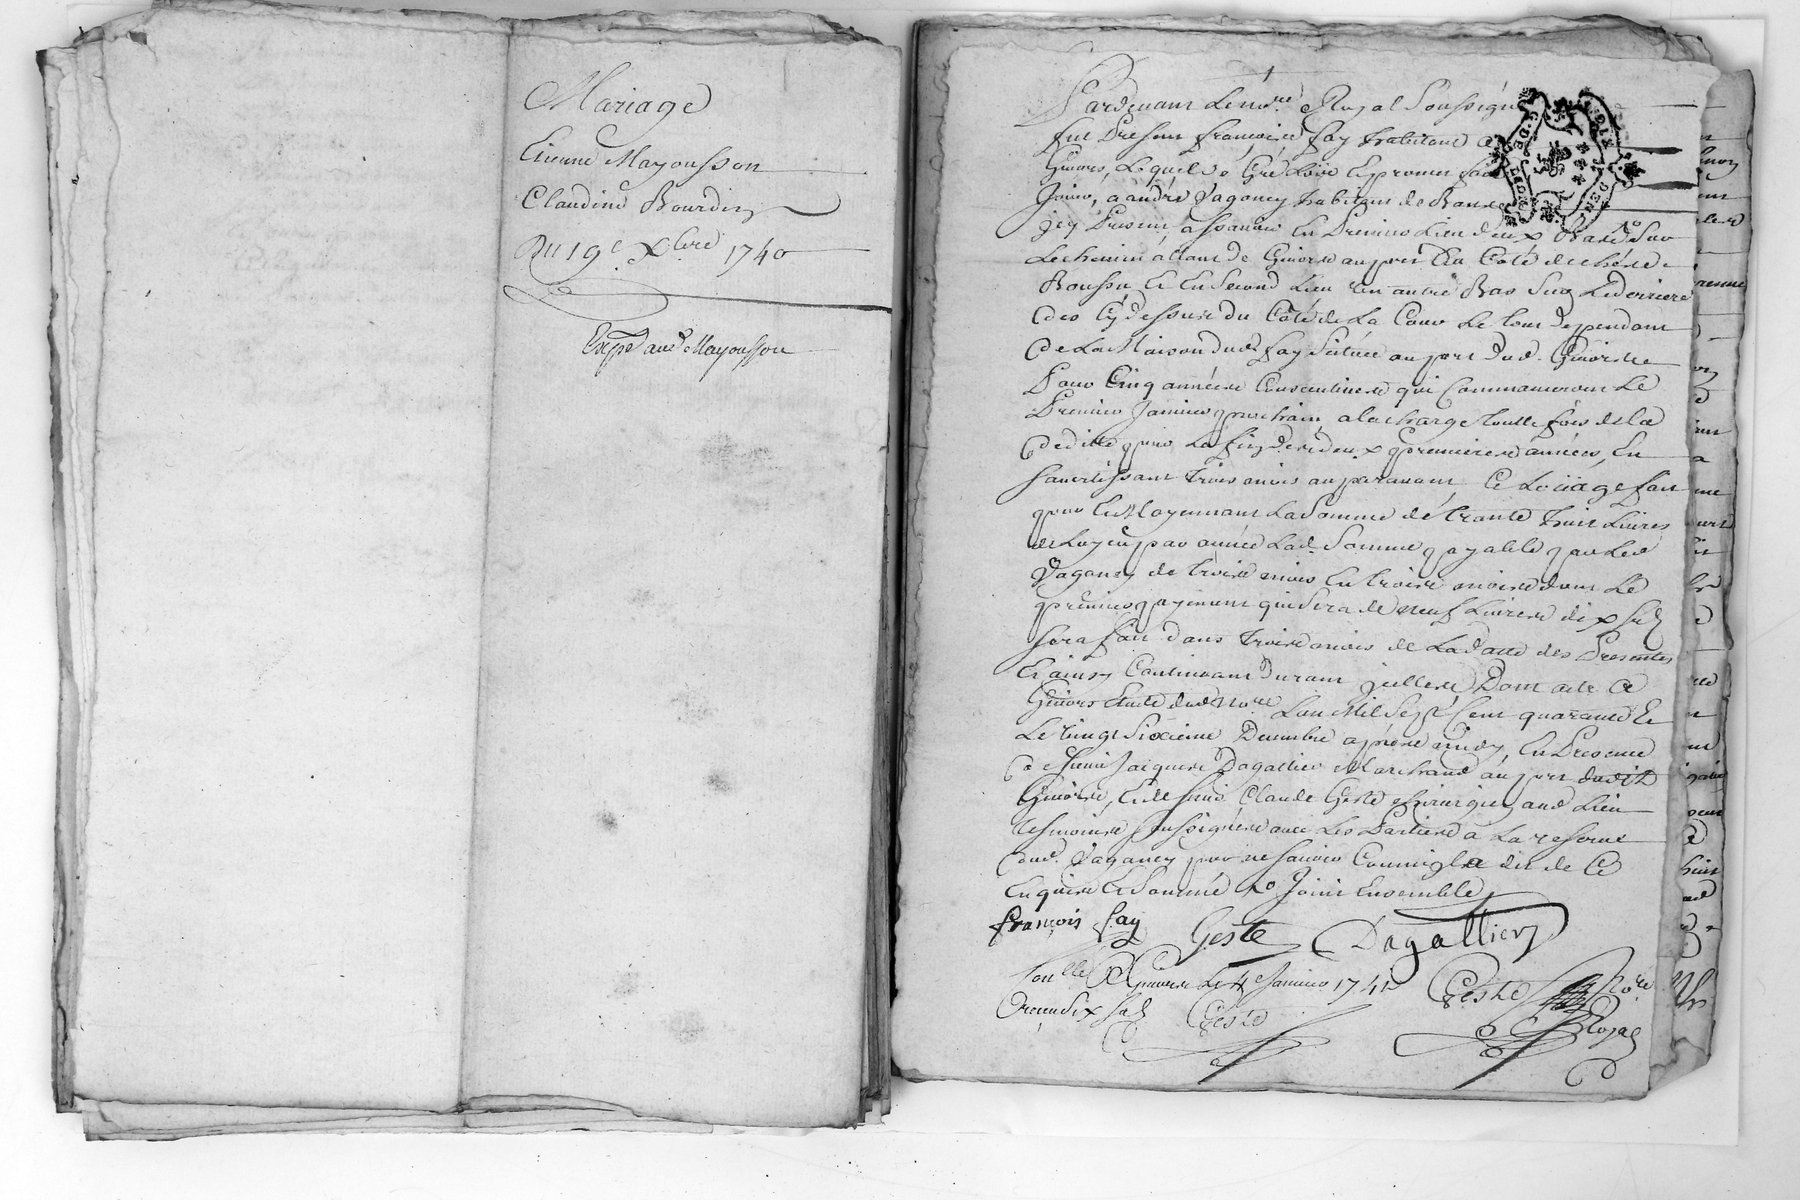 Mariage
Etienne Mayousson
Claudine Bourdin
Du 19e Xbre 1740
Expé aud Mayousson
Pardevant Le nore Royal Soussigné
fut Present françois fay habitant a
Givors, Lequel de Gré Loüe Et promet faire
Joüir, a andré Daganey habitant de
jcy Present, assavoir En Premier Lieu deux
Le chemin allant de Givors au port du Coté de
Et En Second Lieu un autre Bas Sur Le derriere
des Cy dessus du Coté de La Cour Le tout dependant
de La Maison dud fay Scituée au port dud Givors
Pour Cinq années Consecutives qui Commanceront Le
Premier Janvier prochain, a la charge toutte fois de la
deditte pour La fin des deux premieres années, En
Savertissant trois mois auparavant Ce Loüage fait
pour Et Moyennant La Somme de trante huit Livres
de Loyer par année Lad. Somme payable par Led
Daganey de trois mois En trois mois dont Le
premier payement qui Sera de neuf Livres dix sols
Sera fait dans trois mois de La datte des Presentes
Et ainsy Continuant Durant jcelles Dont acte a
Givors Etude dud Nore Lan Mil Sept Cent quarante Et
Le vingt Sixieme Decembre apres midy En Presence
de Sieur Jacques Dagallier Marchand au port dudit
Givors, Et de Sieur Claude Geste chirurgien aud Lieu
tesmoins Soussignés avec Les Parties a La reserve
dud. Daganey pour ne Sçavoir Comme jl a dit de Ce
Enquis Et Sommé Joint Ensemble
françois fay Geste Dagallier
Conllé A Givors Le 4 Janvier 1741 Geste Nore
Reçu dix sols Geste Royal